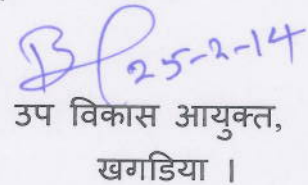 25-2-14
उप विकास आयुक्त,
खगडिया ।